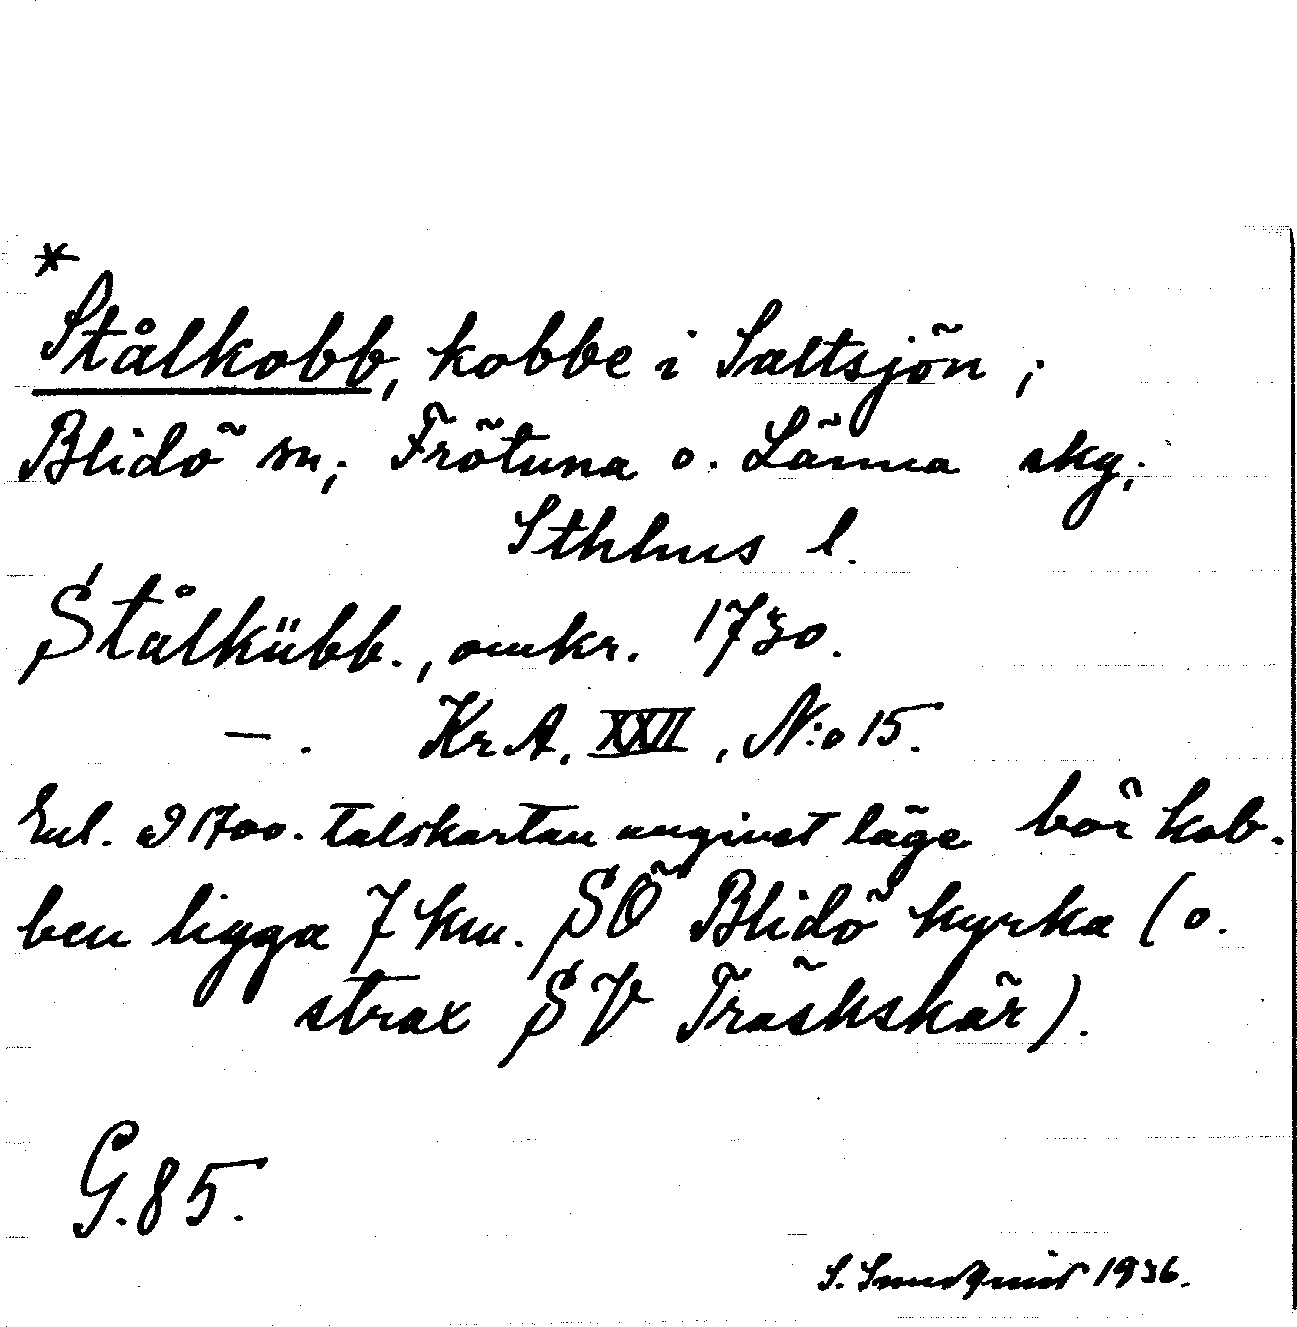 *
Stålkobb, kobbe i Saltsjön;
Blidö sn; Frötuna o. Länna skg;
Sthlms l.
Stålkübb., omkr. 1730.
— . KrA. XXII, N:o 15.
Enl. å 1700-talskartan angivet läge bör kob-
ben ligga 7 km. SÖ Blidö kyrka (o.
strax SV Träskskär).
G.85.
S. 1936.